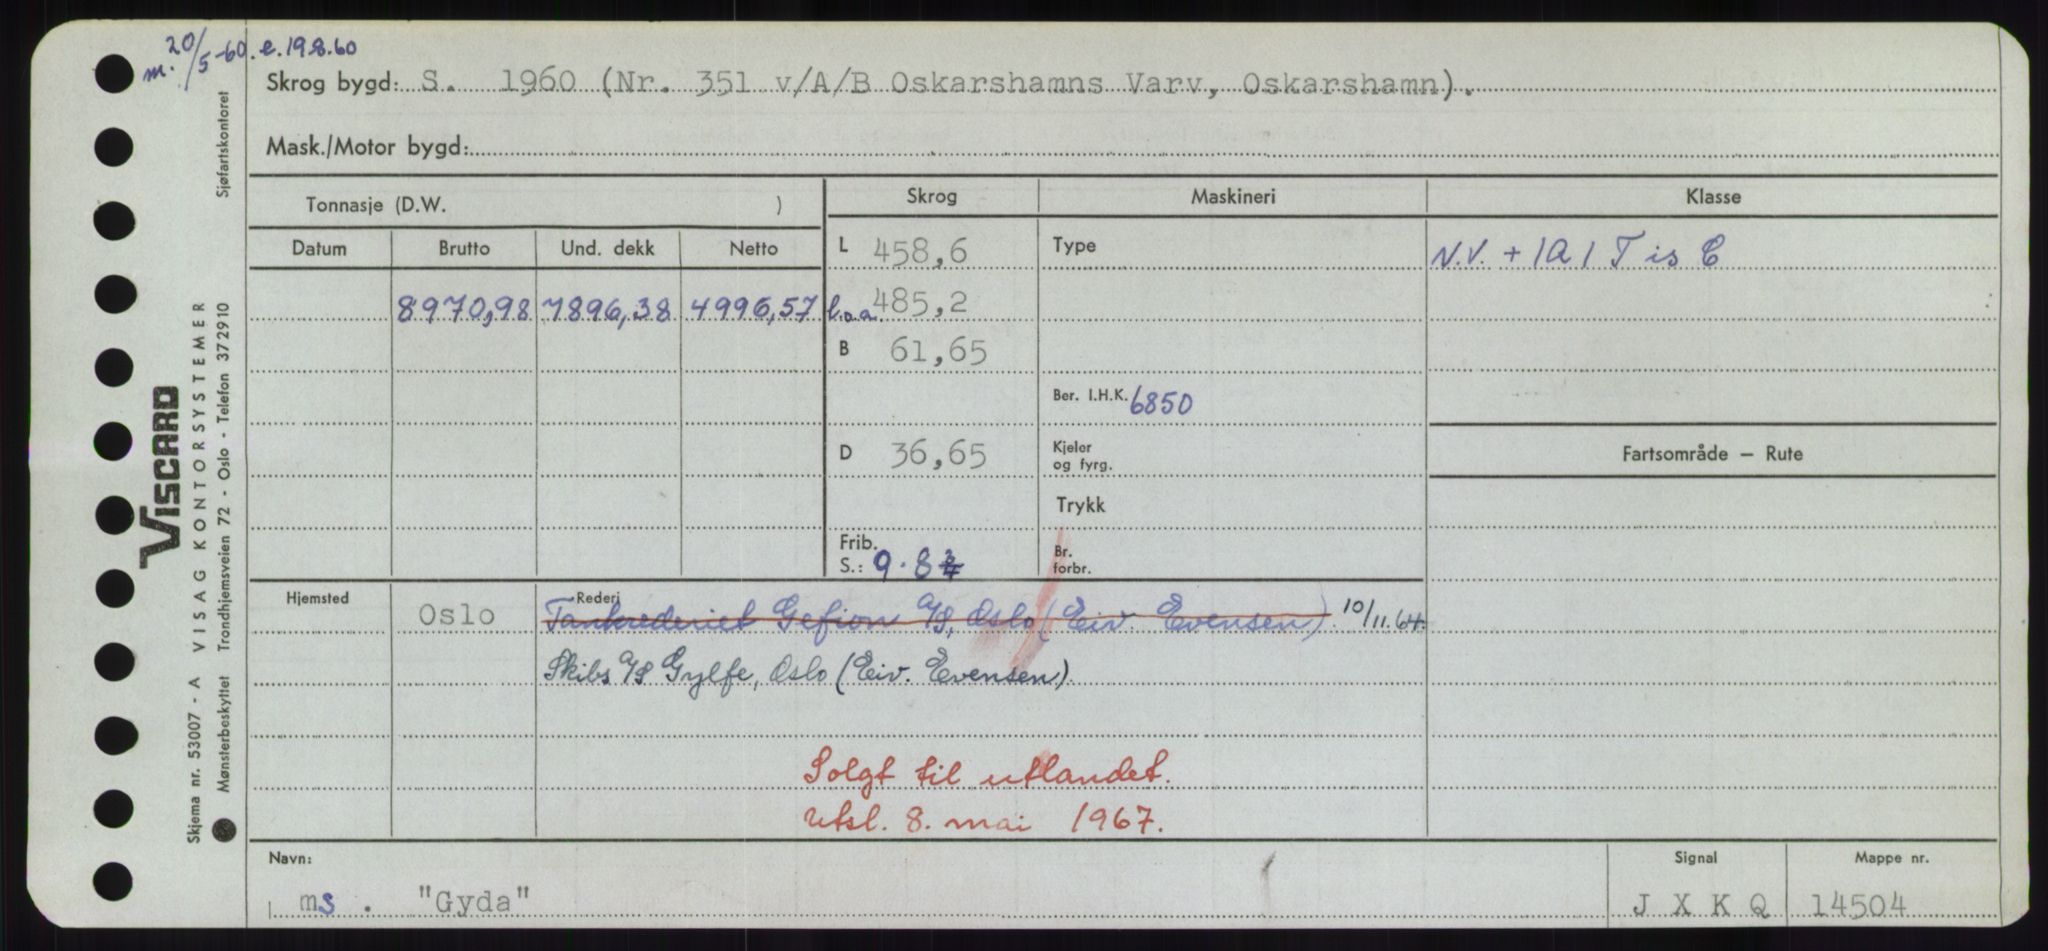 m. 20/5-60. e. 19.8.60
Skrog bygd: S. 1960 (Nr. 351 v/A/B Oskarshamns Varv, Oskarshamn).
Mask./Motor bygd:
Tonnasje (D.W. )
Skrog
Maskineri
Klasse
Datum Brutto Und. dekk Netto
L 458,6
Type
N.V. + 1A1 T is C
8970,98 7896,38 4996,57
l.o.a. 485,2
B 61,65
Ber. I.H.K. 6850
D 36,65
Kjeler
og fyrg.
Fartsområde – Rute
Trykk
Frib.
S.: 9.8
Br.
forbr.
Hjemsted Oslo
Rederi
Tankrederiet Gefion A/S, Oslo (Eiv. Evensen). 10/11.64.
Skibs A/S Gylfe, Oslo (Eiv. Evensen).
Solgt til utlandet.
Utsl. 8. mai 1967.
Navn:
ms. "Gyda"
Signal
J X K Q
Mappe nr.
14504
VISCARD
Skjema nr. 53007 - A VISAG KONTORSYSTEMER
Mønsterbeskyttet Trondhjemsveien 72 - Oslo - Telefon 372910
Sjøfartskontoret